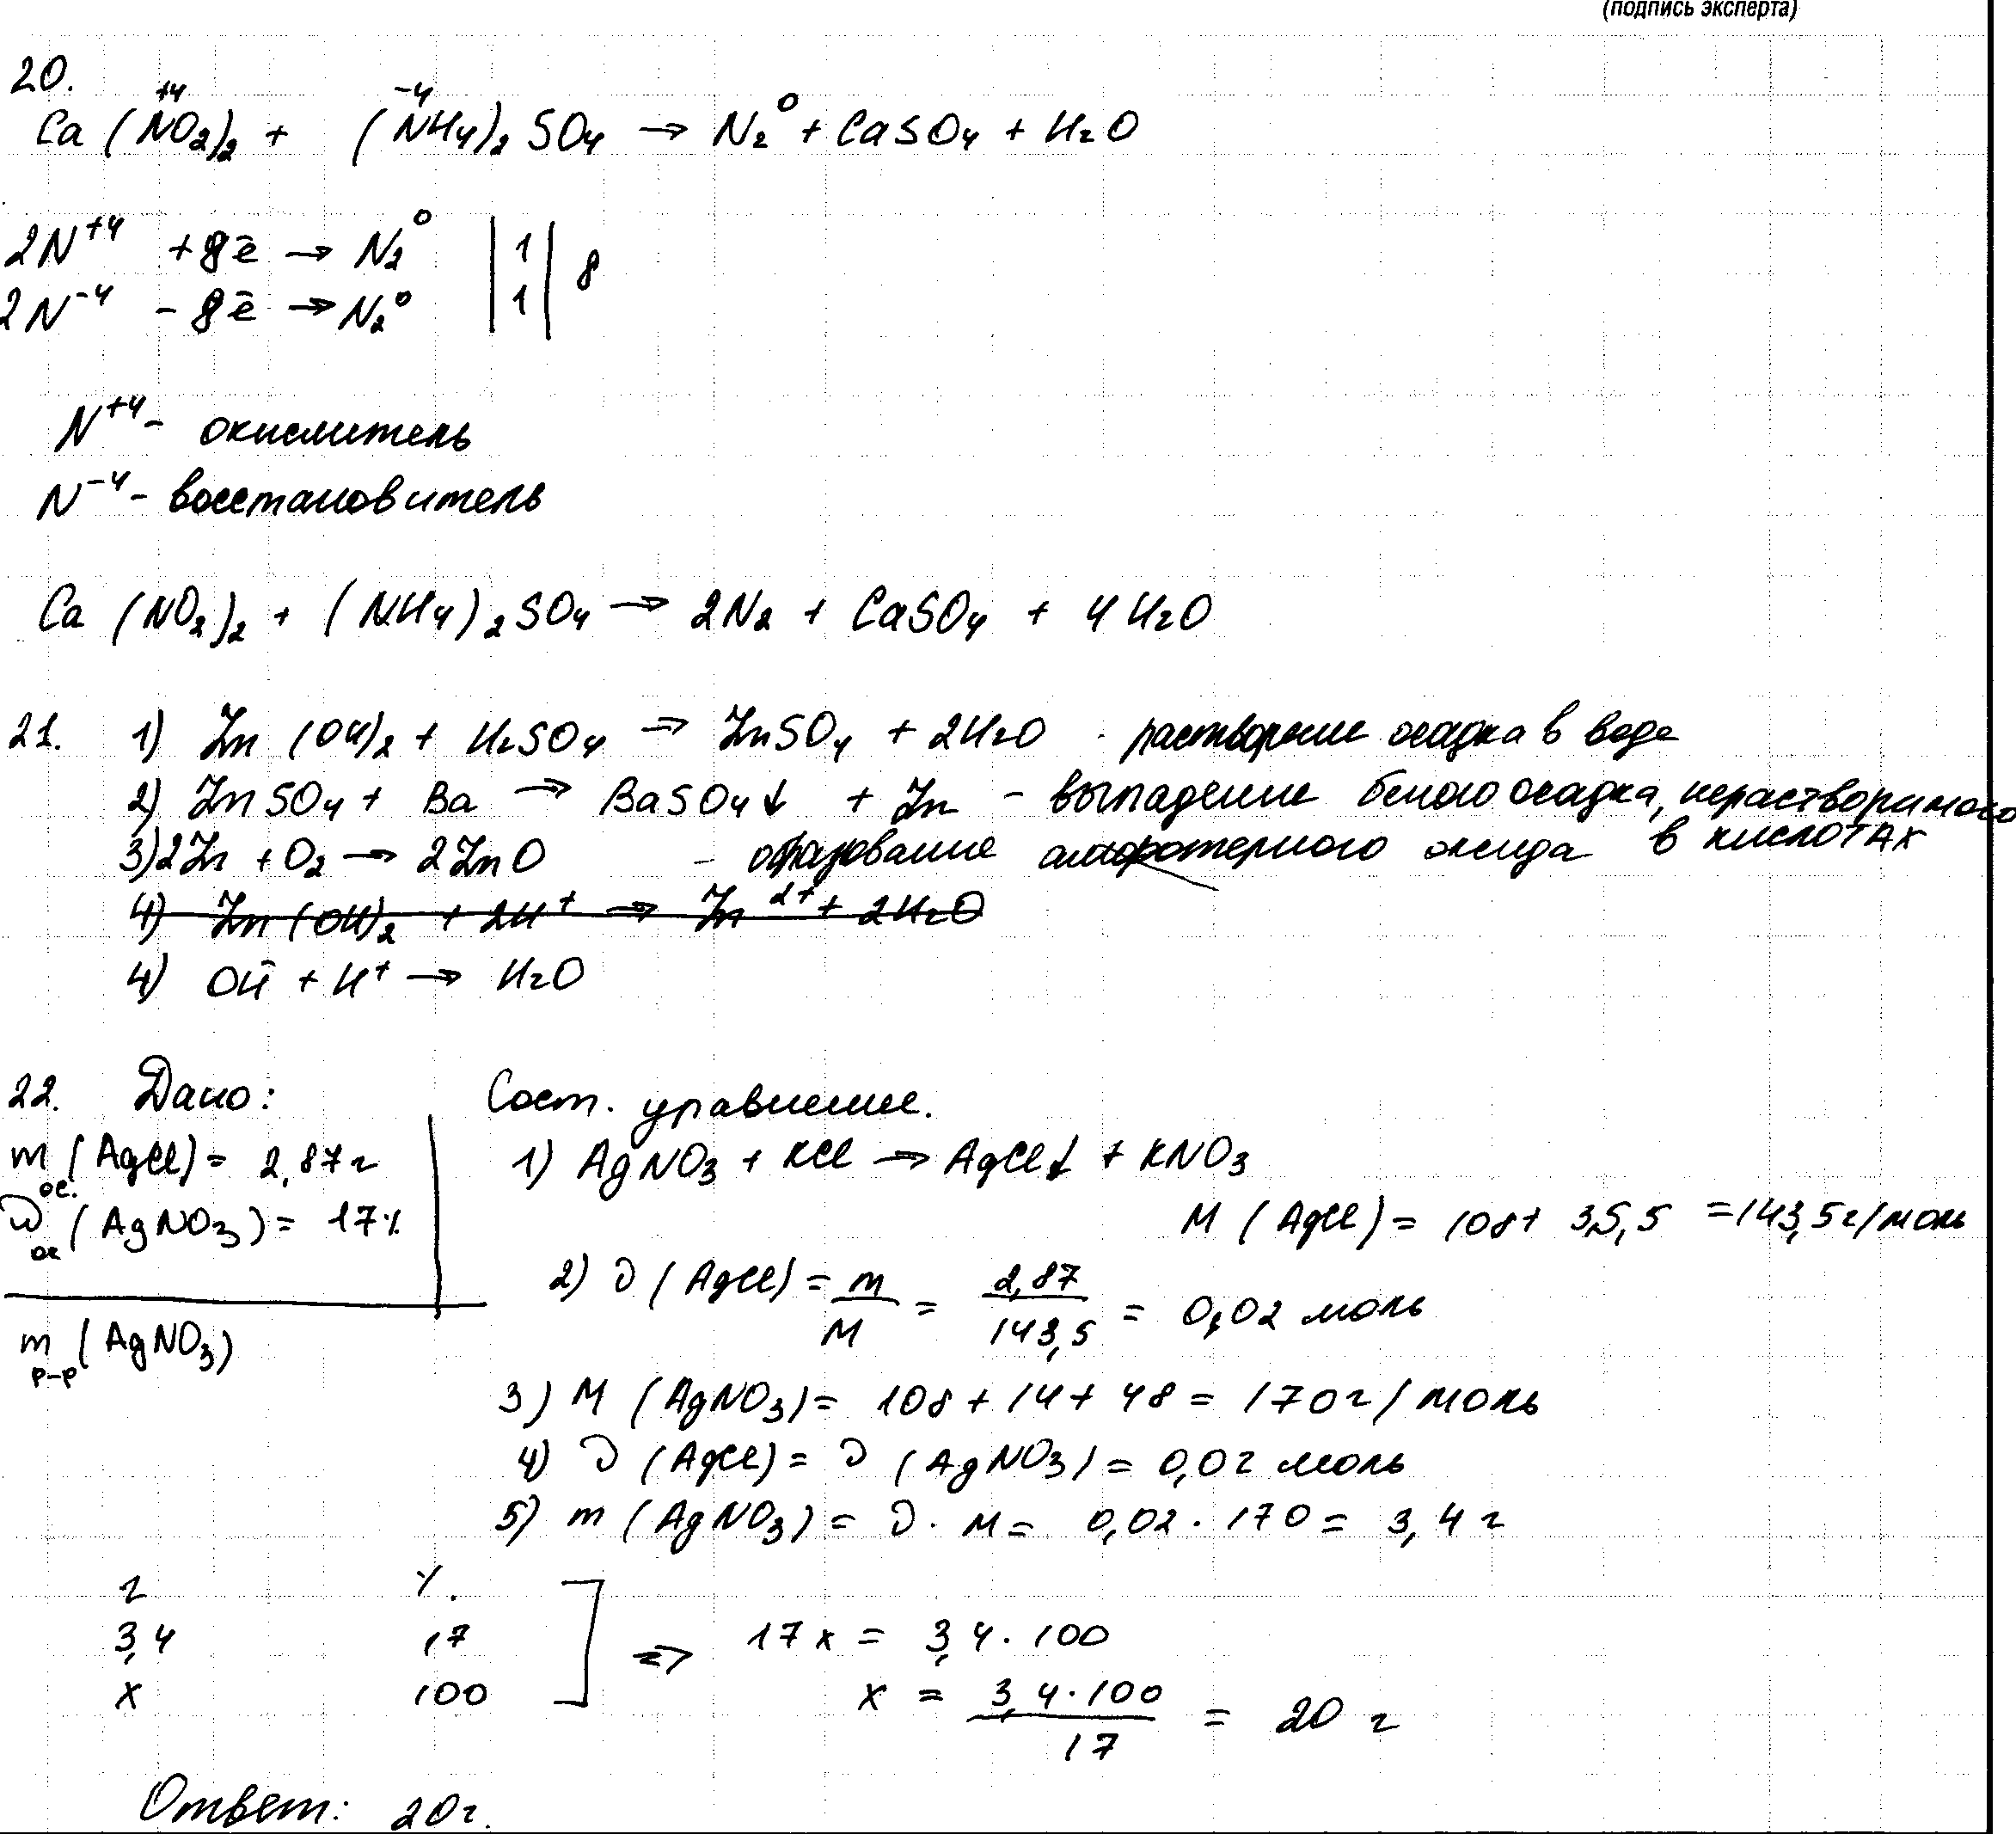 (подпись эксперта)
20.
+4 -4 0
Ca (NO2)2 + (NH4)2 SO4 → N2 + CaSO4 + H2O
2N+4 +8ē → N2 0 | 1 | 8
2N-4 - 8ē → N2 0 | 1 |
N+4 - окислитель
N-4 - восстановитель
Ca (NO2)2 + (NH4)2SO4 → 2N2 + CaSO4 + 4H2O
21. 1) Zn (OH)2 + H2SO4 → ZnSO4 + 2H2O - растворение осадка в воде
2) ZnSO4 + Ba → BaSO4↓ + Zn - выпадение белого осадка, нерастворимого
в кислотах
3) 2Zn + O2 → 2ZnO - образование амфотерного оксида
4) Zn (OH)2 + 2H+ → Zn2+ + 2H2O
4) OH- + H+ → H2O
22. Дано: Сост. уравнение.
m ос. (AgCl) = 2,87г 1) AgNO3 + KCl → AgCl↓ + KNO3
ω ос (AgNO3) = 17% M (AgCl) = 108 + 35,5 = 143,5г/моль
2) ν (AgCl) = m/M = 2,87/143,5 = 0,02 моль
m р-р (AgNO3)
3) M (AgNO3) = 108 + 14 + 48 = 170г/моль
4) ν (AgCl) = ν (AgNO3) = 0,02 моль
5) m (AgNO3) = ν · M = 0,02 · 170 = 3,4 г
г %
3,4 17 ⇒ 17x = 3,4 · 100
x 100 x = 3,4·100/17 = 20 г
Ответ: 20г.